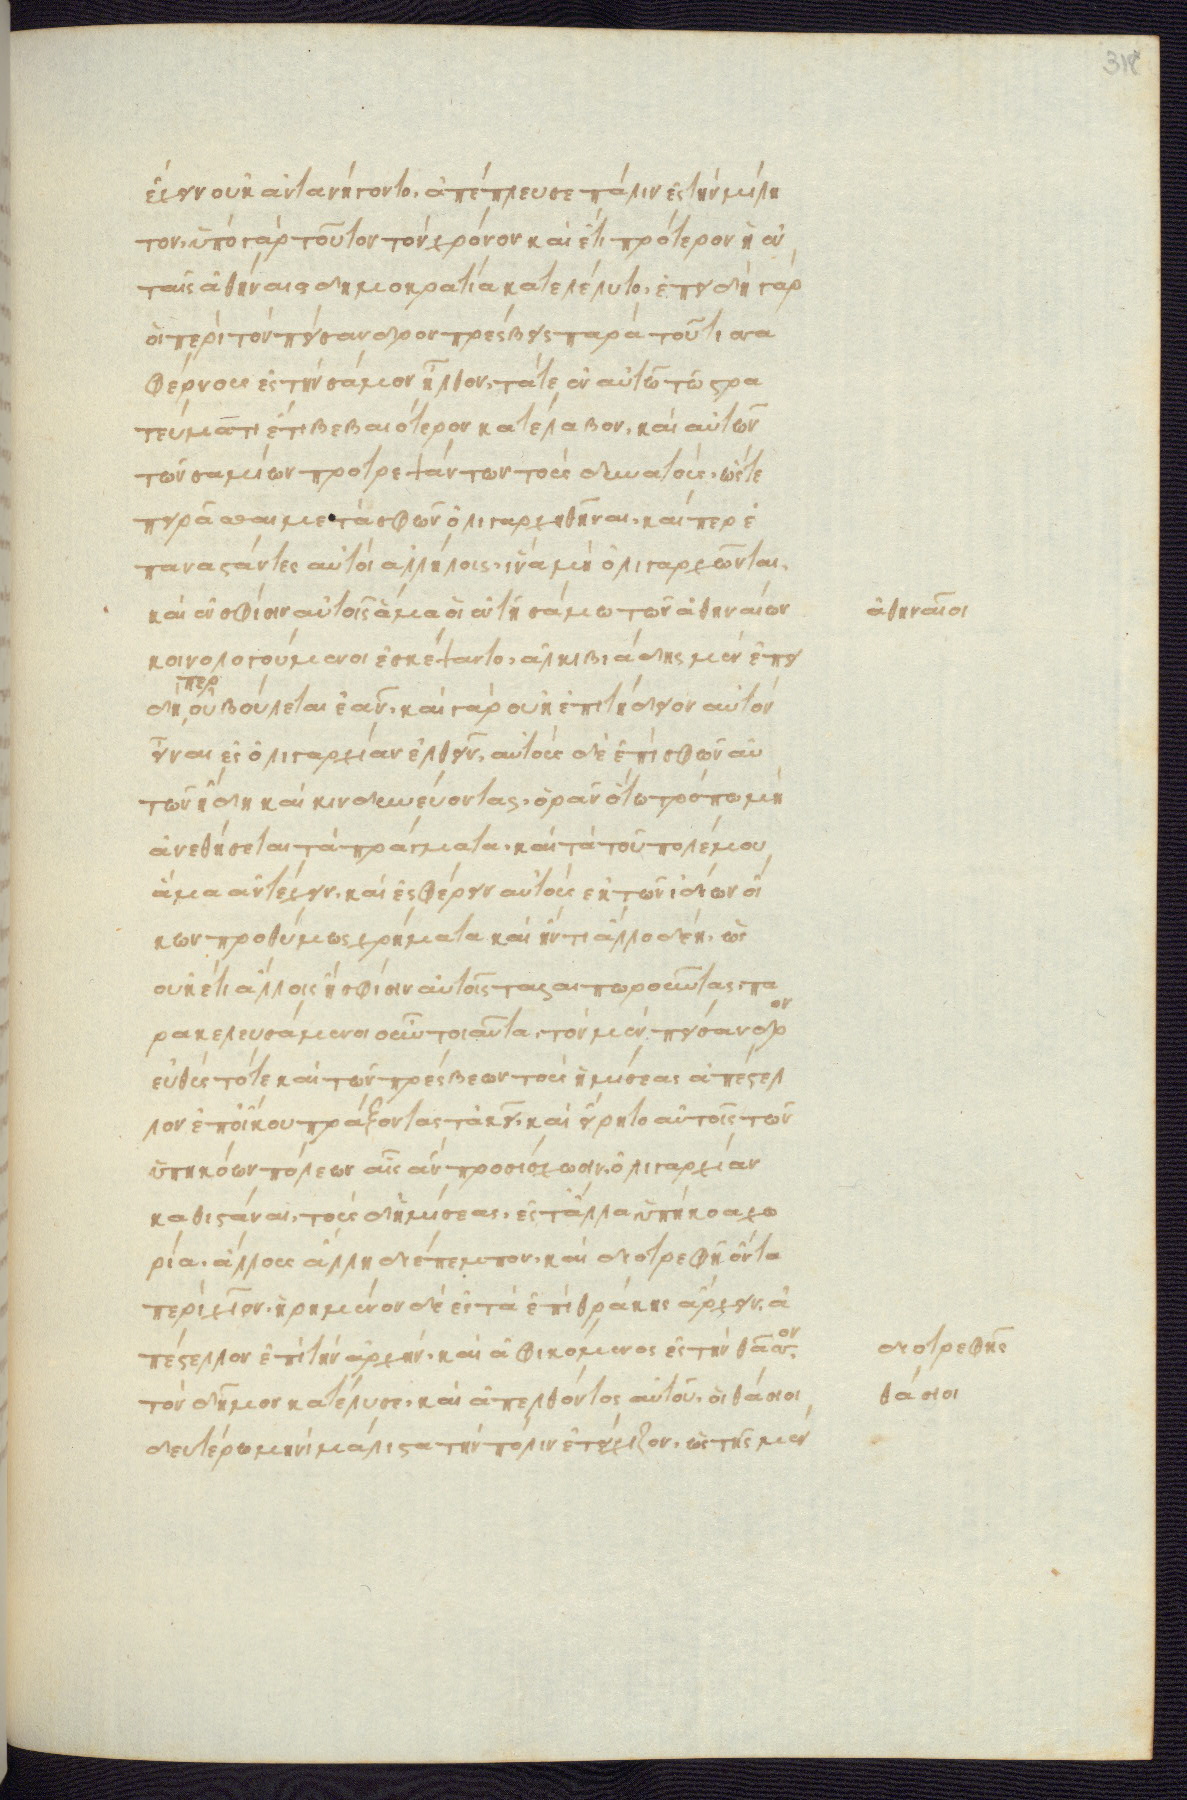 ἔχειν οὐκ ἀντανήγοντο, ἀπέπλευσε πάλιν ἐς τὴν μίλη
τον. ὑπὸ γὰρ τοῦτον τὸν χρόνον καὶ ἔτι πρότερον ἡ ἐν
ταῖς ἀθήναις δημοκρατία κατελέλυτο. ἐπειδὴ γὰρ
οἱ περὶ τὸν πείσανδρον πρέσβεις παρὰ τοῦ τισσα
φέρνους ἐς τὴν σάμον ἦλθον, τά τε ἐν αὐτῶ τῶ στρα
τεύματι ἔτι βεβαιότερον κατέλαβον, καὶ αὐτῶν
τῶν σαμίων προτρεψάντων τοὺς δυνατοὺς, ὥστε
πειρᾶσθαι μετὰ σφῶν ὀλιγαρχηθῆναι, καίπερ ἐ
παναστάντες αὐτοὶ ἀλλήλοις, ἵνα μὴ ὀλιγαρχῶνται.
καὶ ἐν σφίσιν αὐτοῖς ἅμα οἱ ἐν τῆ σάμω τῶν ἀθηναίων
ἀθηναῖοι
κοινολογούμενοι ἐσκέψαντο, ἀλκιβιάδης μὲν ἐπει
δήπερ οὐ βούλεται ἐᾶν, καὶ γὰρ οὐκ ἐπιτήδειον αὐτὸν
εἶναι ἐς ὀλιγαρχίαν ἐλθεῖν, αὐτοὺς δὲ ἐπὶ σφῶν αὐ
τῶν ἤδη καὶ κινδυνεύοντας, ὁρᾶν ὅτω τρόπω μὴ
ἀνεθήσεται τὰ πράγματα, καὶ τὰ τοῦ πολέμου
ἅμα ἀντέχειν, καὶ ἐσφέρειν αὐτοὺς ἐκ τῶν ἰδίων οἴ
κων προθύμως χρήματα καὶ ἤν τι ἄλλο δέη, ὡς
οὐκέτι ἄλλοις ἢ σφίσιν αὐτοῖς ταλαιπωροῦντας, πα
ρακελευσάμενοι οὖν τοιαῦτα, τὸν μὲν πείσανδρον
εὐθὺς τότε καὶ τῶν πρέσβεων τοὺς ἡμίσεας ἀπέστελ
λον ἐπ' οἴκου πράξοντας τἀκεῖ, καὶ εἴρητο αὐτοῖς τῶν
ὑπηκόων πόλεων αἷς ἂν προσίσχωσιν, ὀλιγαρχίαν
καθιστάναι, τοὺς δ' ἡμίσεας, ἐς τἆλλα ὑπήκοα χω
ρία, ἄλλους ἄλλη διέπεμπον, καὶ διοτρεφῆ ὄντα
περὶ χῖον, ἡρημένον δὲ ἐς τὰ ἐπὶ θράκης ἄρχειν, ἀ
πέστελλον ἐπὶ τὴν ἀρχήν. καὶ ἀφικόμενος ἐς τὴν θάσον,
διοτρεφης
τὸν δῆμον κατέλυσε. καὶ ἀπελθόντος αὐτοῦ, οἱ θάσιοι
θάσιοι
δευτέρω μηνὶ μάλιστα τὴν πόλιν ἐτείχιζον, ὡς τῆς μὲν